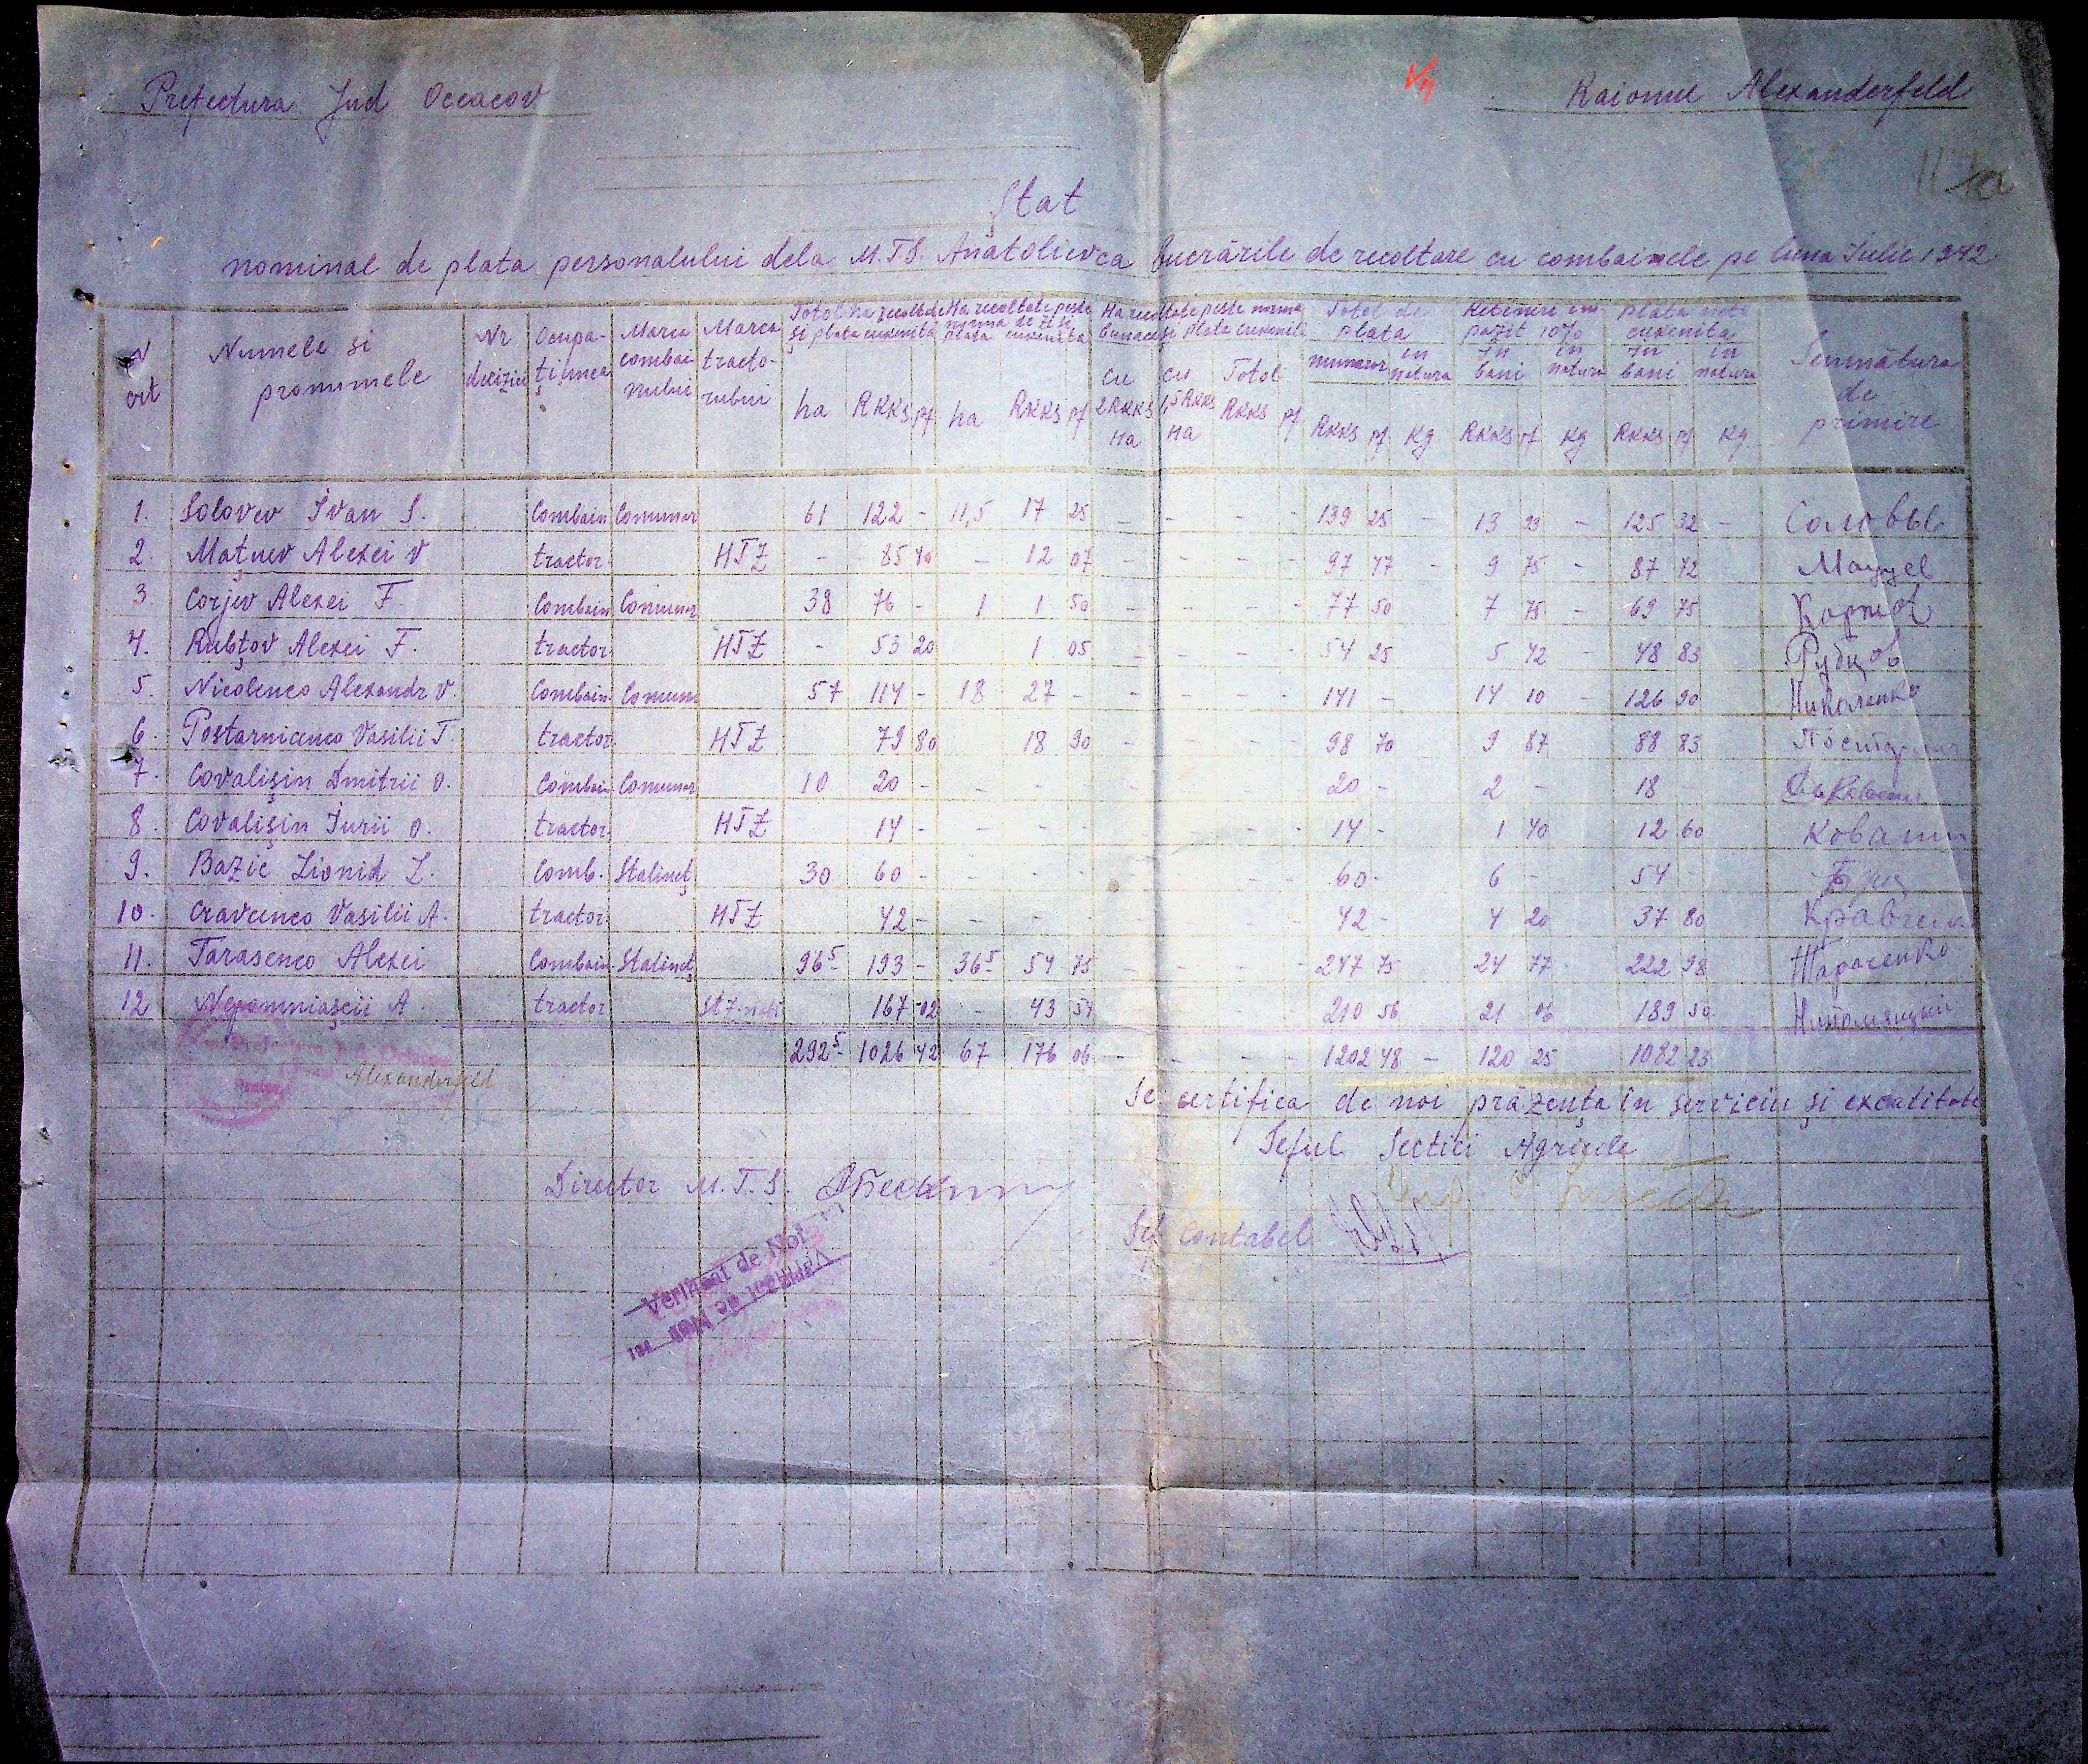 Prefectura Jud Oceacov
Raionul Alexanderfeld
Ștat
nominal de plata personalului dela M.T.S. Anatolievca lucrările de recoltare cu combainele pe luna Iulie 1942
N ort | Numele si pronumele | Nr deciziei | Ocupa-țiunea | Marca combai-nului | Marca tracto-rului | Totol ha recoltate și plata cuvenita | Ha recoltate peste norma de zi si plata cuvenita | Ha recoltate peste norma și plata cuvenita | Totol de plata | Retinere 10% | plata neto cuvenita | Semnătura de primire
ha | RKKS | pf | ha | RKKS | pf | cu 2 RKKS Ha | cu 1,5 RKKS Ha | Totol RKKS | pf | numerar RKKS | pf | in natura Kg | in bani RKKS | pf | in natura Kg | in bani RKKS | pf | in natura Kg
1. Solovev Ivan S. Combain Comunar 61 122 - 11,5 17 25 - - - - 139 25 - 13 93 - 125 32 - Соловье
2. Mațuev Alexei V tractor HTZ - 85 40 - 12 07 - - - - 97 47 - 9 75 - 87 72 Мацуев
3. Corjev Alexei F. Combain Comunar 38 76 - 1 1 50 - - - - 77 50 7 75 - 69 75 Коржов
4. Rubțov Alexei F. tractor HTZ - 53 20 1 05 - - - - 54 25 5 42 - 48 83 Рубцов
5. Nicolenco Alexandr V. Combain Comunar 57 114 - 18 27 - - - - - 141 - 14 10 - 126 90 Николенко
6. Postarnicenco Vasilii T. tractor HTZ 79 80 18 90 - - - - 98 70 9 87 88 83
7. Covalișin Dmitrii O. Combain Comunar 10 20 - - - - 20 - 2 - 18
8. Covalișin Iurii O. tractor HTZ 14 - - - - 14 - 1 40 12 60
9. Bazic Lionid L. Comb. Stalineț 30 60 - - - - 60 - 6 - 54
10. Cravcenco Vasilii A. tractor HTZ 42 - - - 42 - 4 20 37 80
11. Tarasenco Alexei Combain Stalineț 96⁵ 193 - 36⁵ 54 75 - - - - 247 75 24 77 222 98 Тарасенко
12 Nepomniașcii A tractor STZ 167 02 - 43 54 210 56 21 06 189 50
292⁵ 1026 42 67 176 06 - - - - 1202 48 - 120 25 1082 23
Alexanderfeld
Se certifica de noi prăzența în serviciu și excatitate
Seful Sectiei Agricole
Director M.T.S.
Șef Contabel
Verificat de Noi